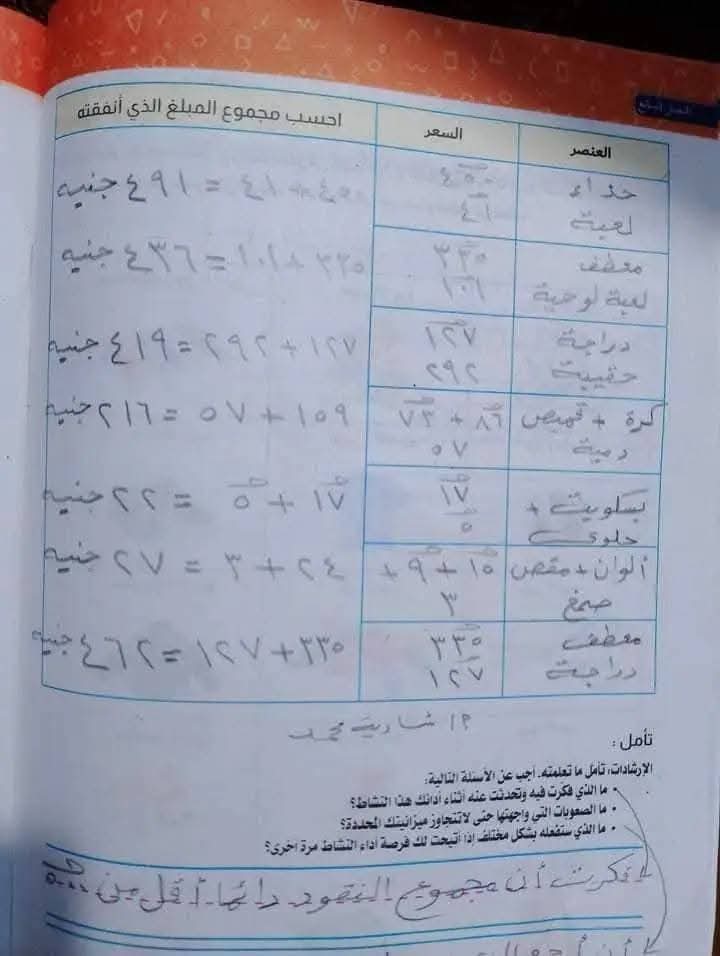 العنصر السعر احسب مجموع المبلغ الذي أنفقته
حذاء ٤٥٠ ٤٥٠ + ٤١ = ٤٩١ جنيه
لعبة ٤١
معطف ٣٣٥ ٣٣٥ + ١٠١ = ٤٣٦ جنيه
لعبة لوحية ١٠١
دراجة ١٢٧ ١٢٧ + ٢٩٢ = ٤١٩ جنيه
حقيبة ٢٩٢
كرة + قميص ٨٦ + ٧٣ ١٥٩ + ٥٧ = ٢١٦ جنيه
دمية ٥٧
بسكويت + ١٧ ١٧ + ٥ = ٢٢ جنيه
حلوى ٥
ألوان + مقص ١٥ + ٩ + ٢٤ + ٣ = ٢٧ جنيه
صمغ ٣
معطف ٣٣٥ ٣٣٥ + ١٢٧ = ٤٦٢ جنيه
دراجة ١٢٧
شادية محمد
تأمل :
الإرشادات: تأمل ما تعلمته. أجب عن الأسئلة التالية:
• ما الذي فكرت فيه وتحدثت عنه أثناء أدائك هذا النشاط؟
• ما الصعوبات التي واجهتها حتى لا تتجاوز ميزانيتك المحددة؟
• ما الذي ستفعله بشكل مختلف إذا أتيحت لك فرصة أداء النشاط مرة أخرى؟
فكرت أن مجموع النقود دائما أقل من ٥٠٠